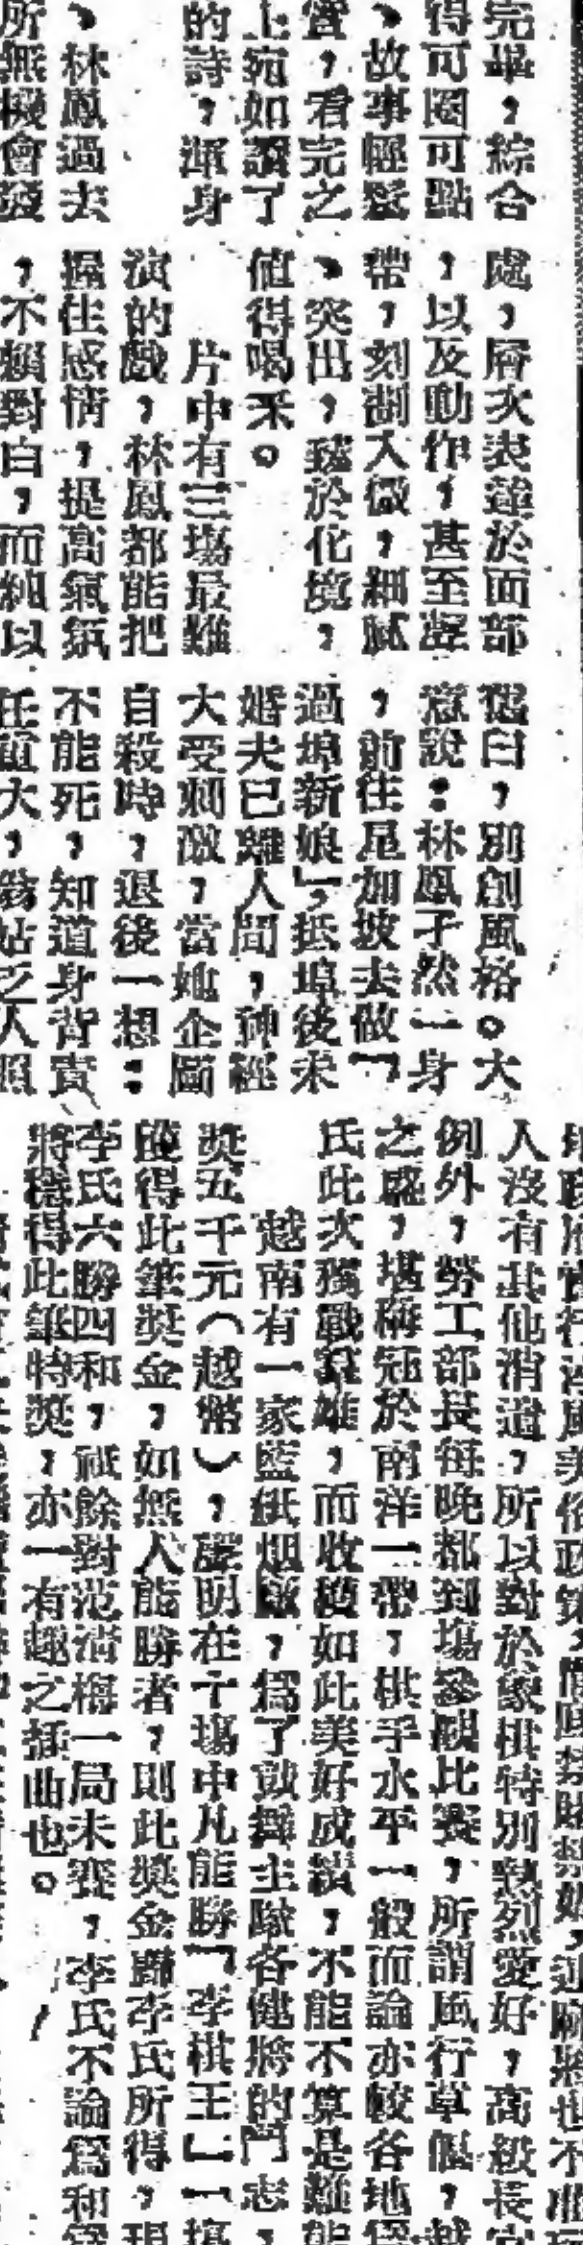 完畢，綜合
得可圈可點
、故事輕鬆
，看完之
上宛如讀了
的詩，渾身
、林鳳過去
所無機會發
處，層次表達於面部
，以及動作，甚至凝
帶，刻劃入微，細膩
、突出，臻於化境，
值得喝采。
片中有三場最難
演的戲，林鳳都能把
握住感情，提高氣氛
，不賴對白，而純以
別創風格。大
意說：林鳳孑然一身
，前往星加坡去做「
過埠新娘」，抵埠後未
婚夫已離人間，神經
大受刺激，當她企圖
自殺時，退後一想：
不能死，知道身背責
任重大，
人沒有其他消遣，所以對於象棋特別熱烈愛好，高級長官
例外，勞工部長每晚都到塲參觀比賽，所謂風行草偃，越
之盛，堪稱冠於南洋一帶，棋手水平一般而論亦較各地
氏此次獨戰羣雄，而收穫如此美好成績，不能不算是難能
越南有一家藍紙烟廠，爲了鼓舞主隊各健將的鬥志，
獎五千元（越幣），聲明在十塲中凡能勝「李棋王」一
獲得此筆獎金，如無人能勝者，則此獎金歸李氏所得，現
李氏六勝四和，祗餘對范清梅一局未賽，李氏不論爲和
將穩得此筆特獎，亦一有趣之插曲也。